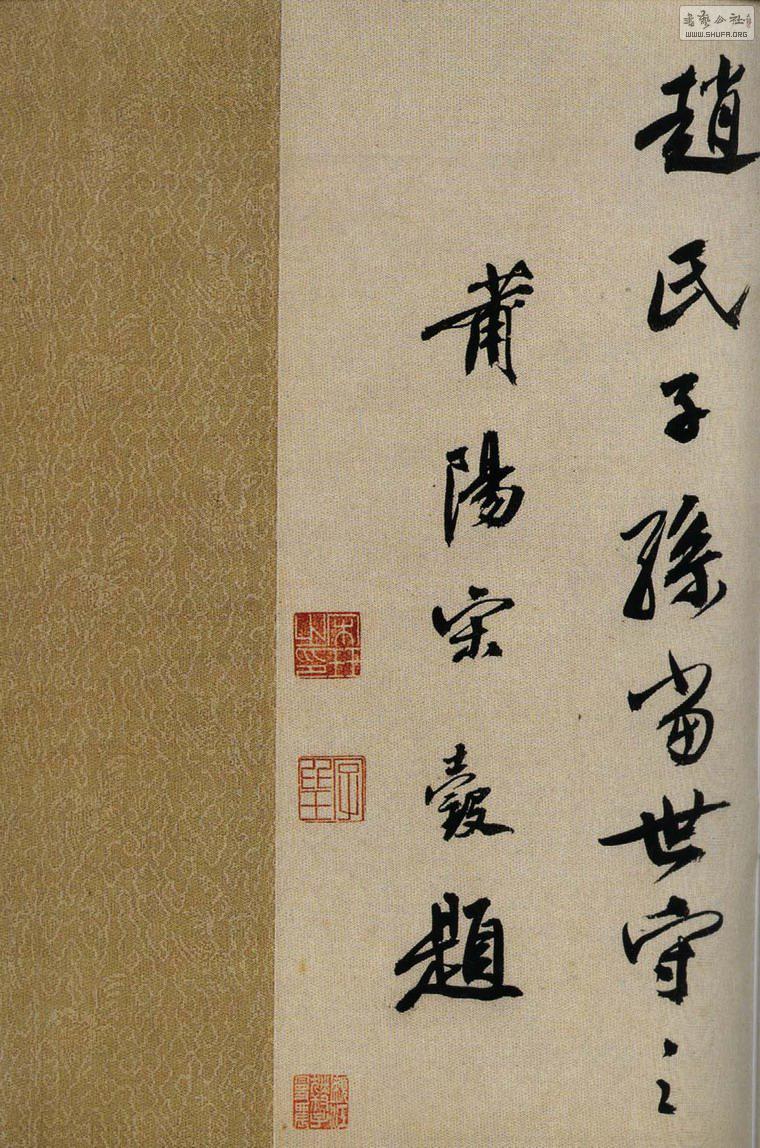 趙氏子孫當世守之
莆陽宋瑴題
書藝公社
WWW.SHUFA.ORG